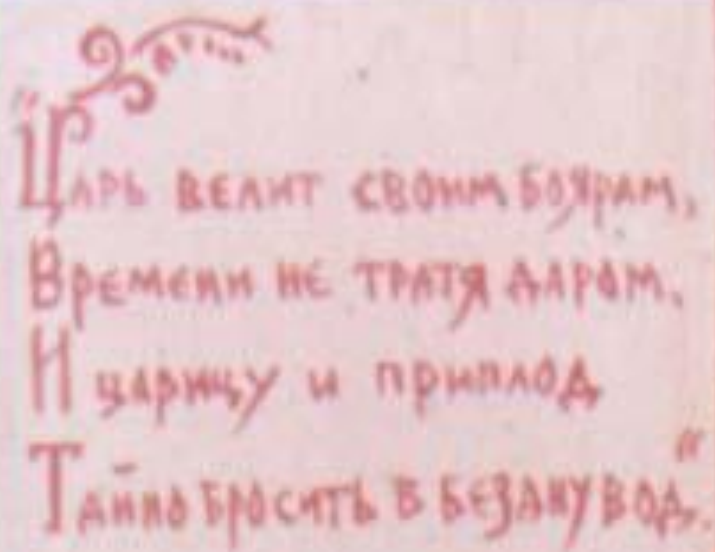 "Царь велит своим боярам,
Времени не тратя даром,
И царицу и приплод
Тайно бросить в бездну вод".